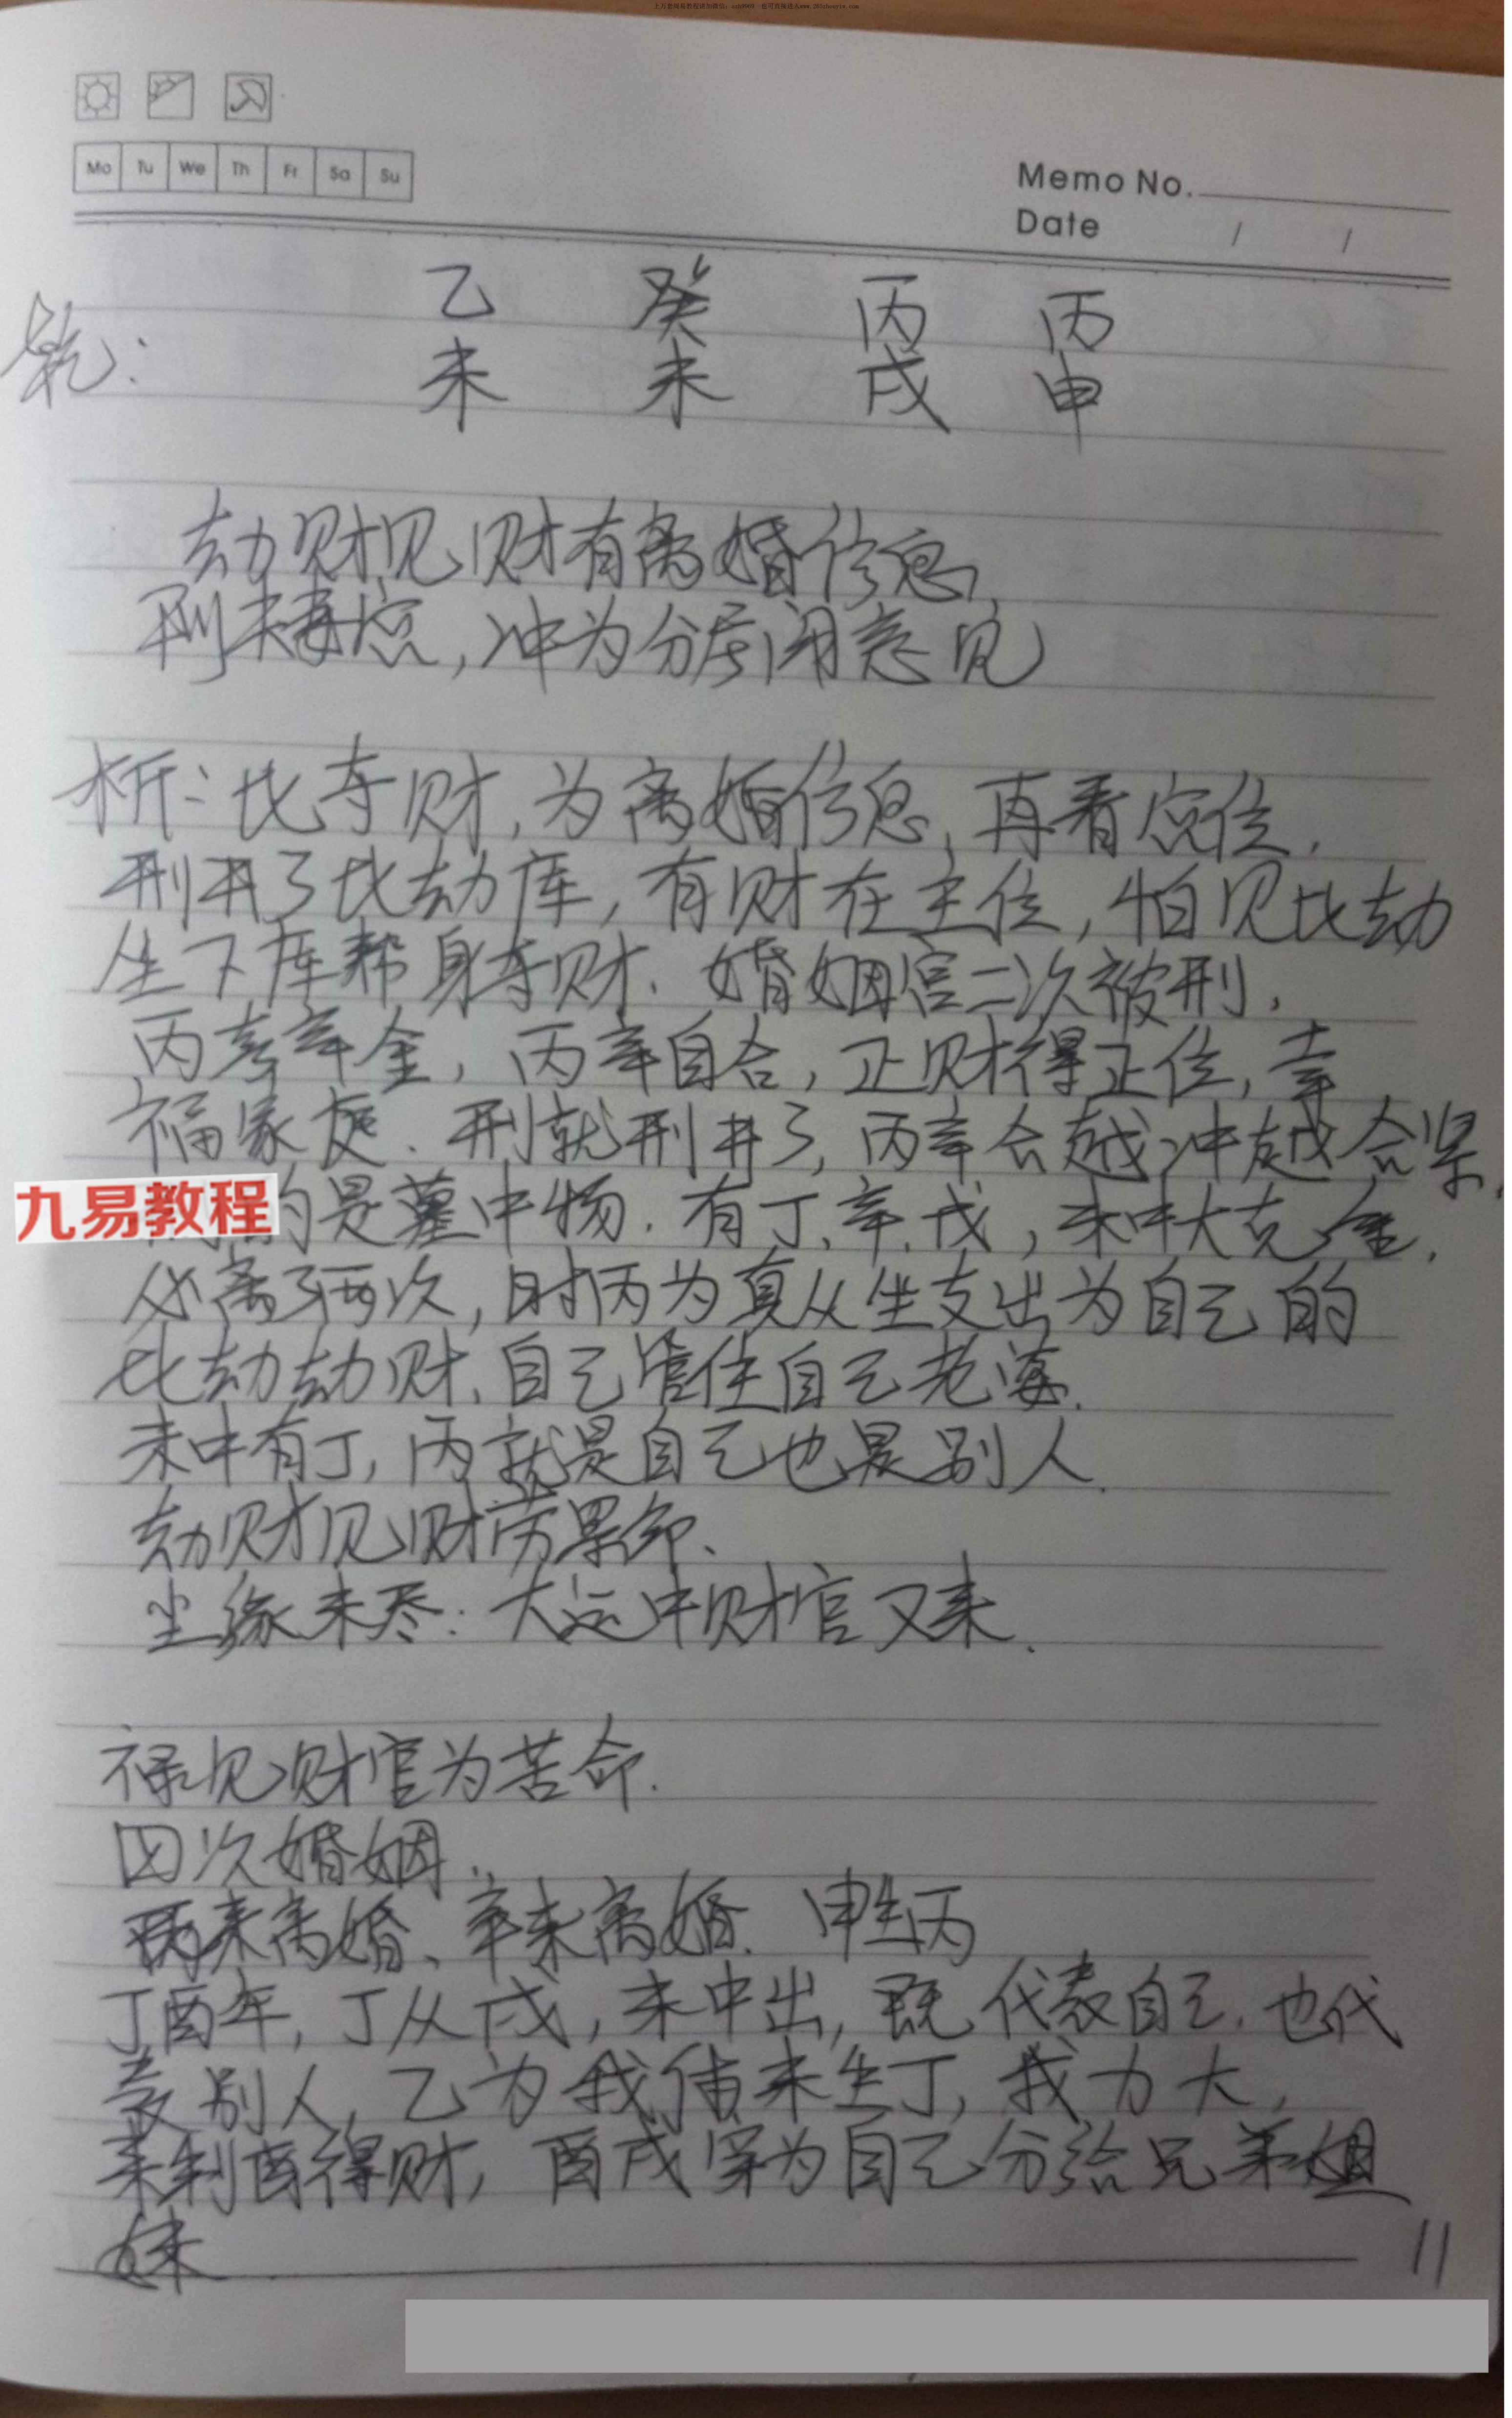 Mo Tu We Th Fr Sa Su
Memo No.
Date / /
乙 癸 丙 丙
乾：
未 未 戌 申
劫财见财有离婚信息，
刑夫妻宫，冲为分居闹意见
析：比夺财，为离婚信息，再看宫位．
刑开了比劫库，有财在主位，怕见比劫
坐下库帮身夺财．婚姻宫二次被刑．
丙辛金，丙辛自合，正财得正位，幸
福家庭．刑就刑开了，丙辛合越冲越合紧．
九易教程
的是墓中物．有丁、辛、戊，未中火克金．
必离了两次，时丙为真从坐支出为自己的
比劫劫财、自己管住自己老婆．
未中有丁，丙就是自己也是别人．
劫财见财劳累命、
尘缘未尽：大运中财官又来．
禄见财官为苦命．
四次婚姻．
离婚、辛未离婚．申生丙
丁酉年，丁从戌，未中出，既代表自己．也代
表别人，乙为我借未生丁，我力大，
未制酉得财，酉戌穿为自己分给兄弟姐
妹
11